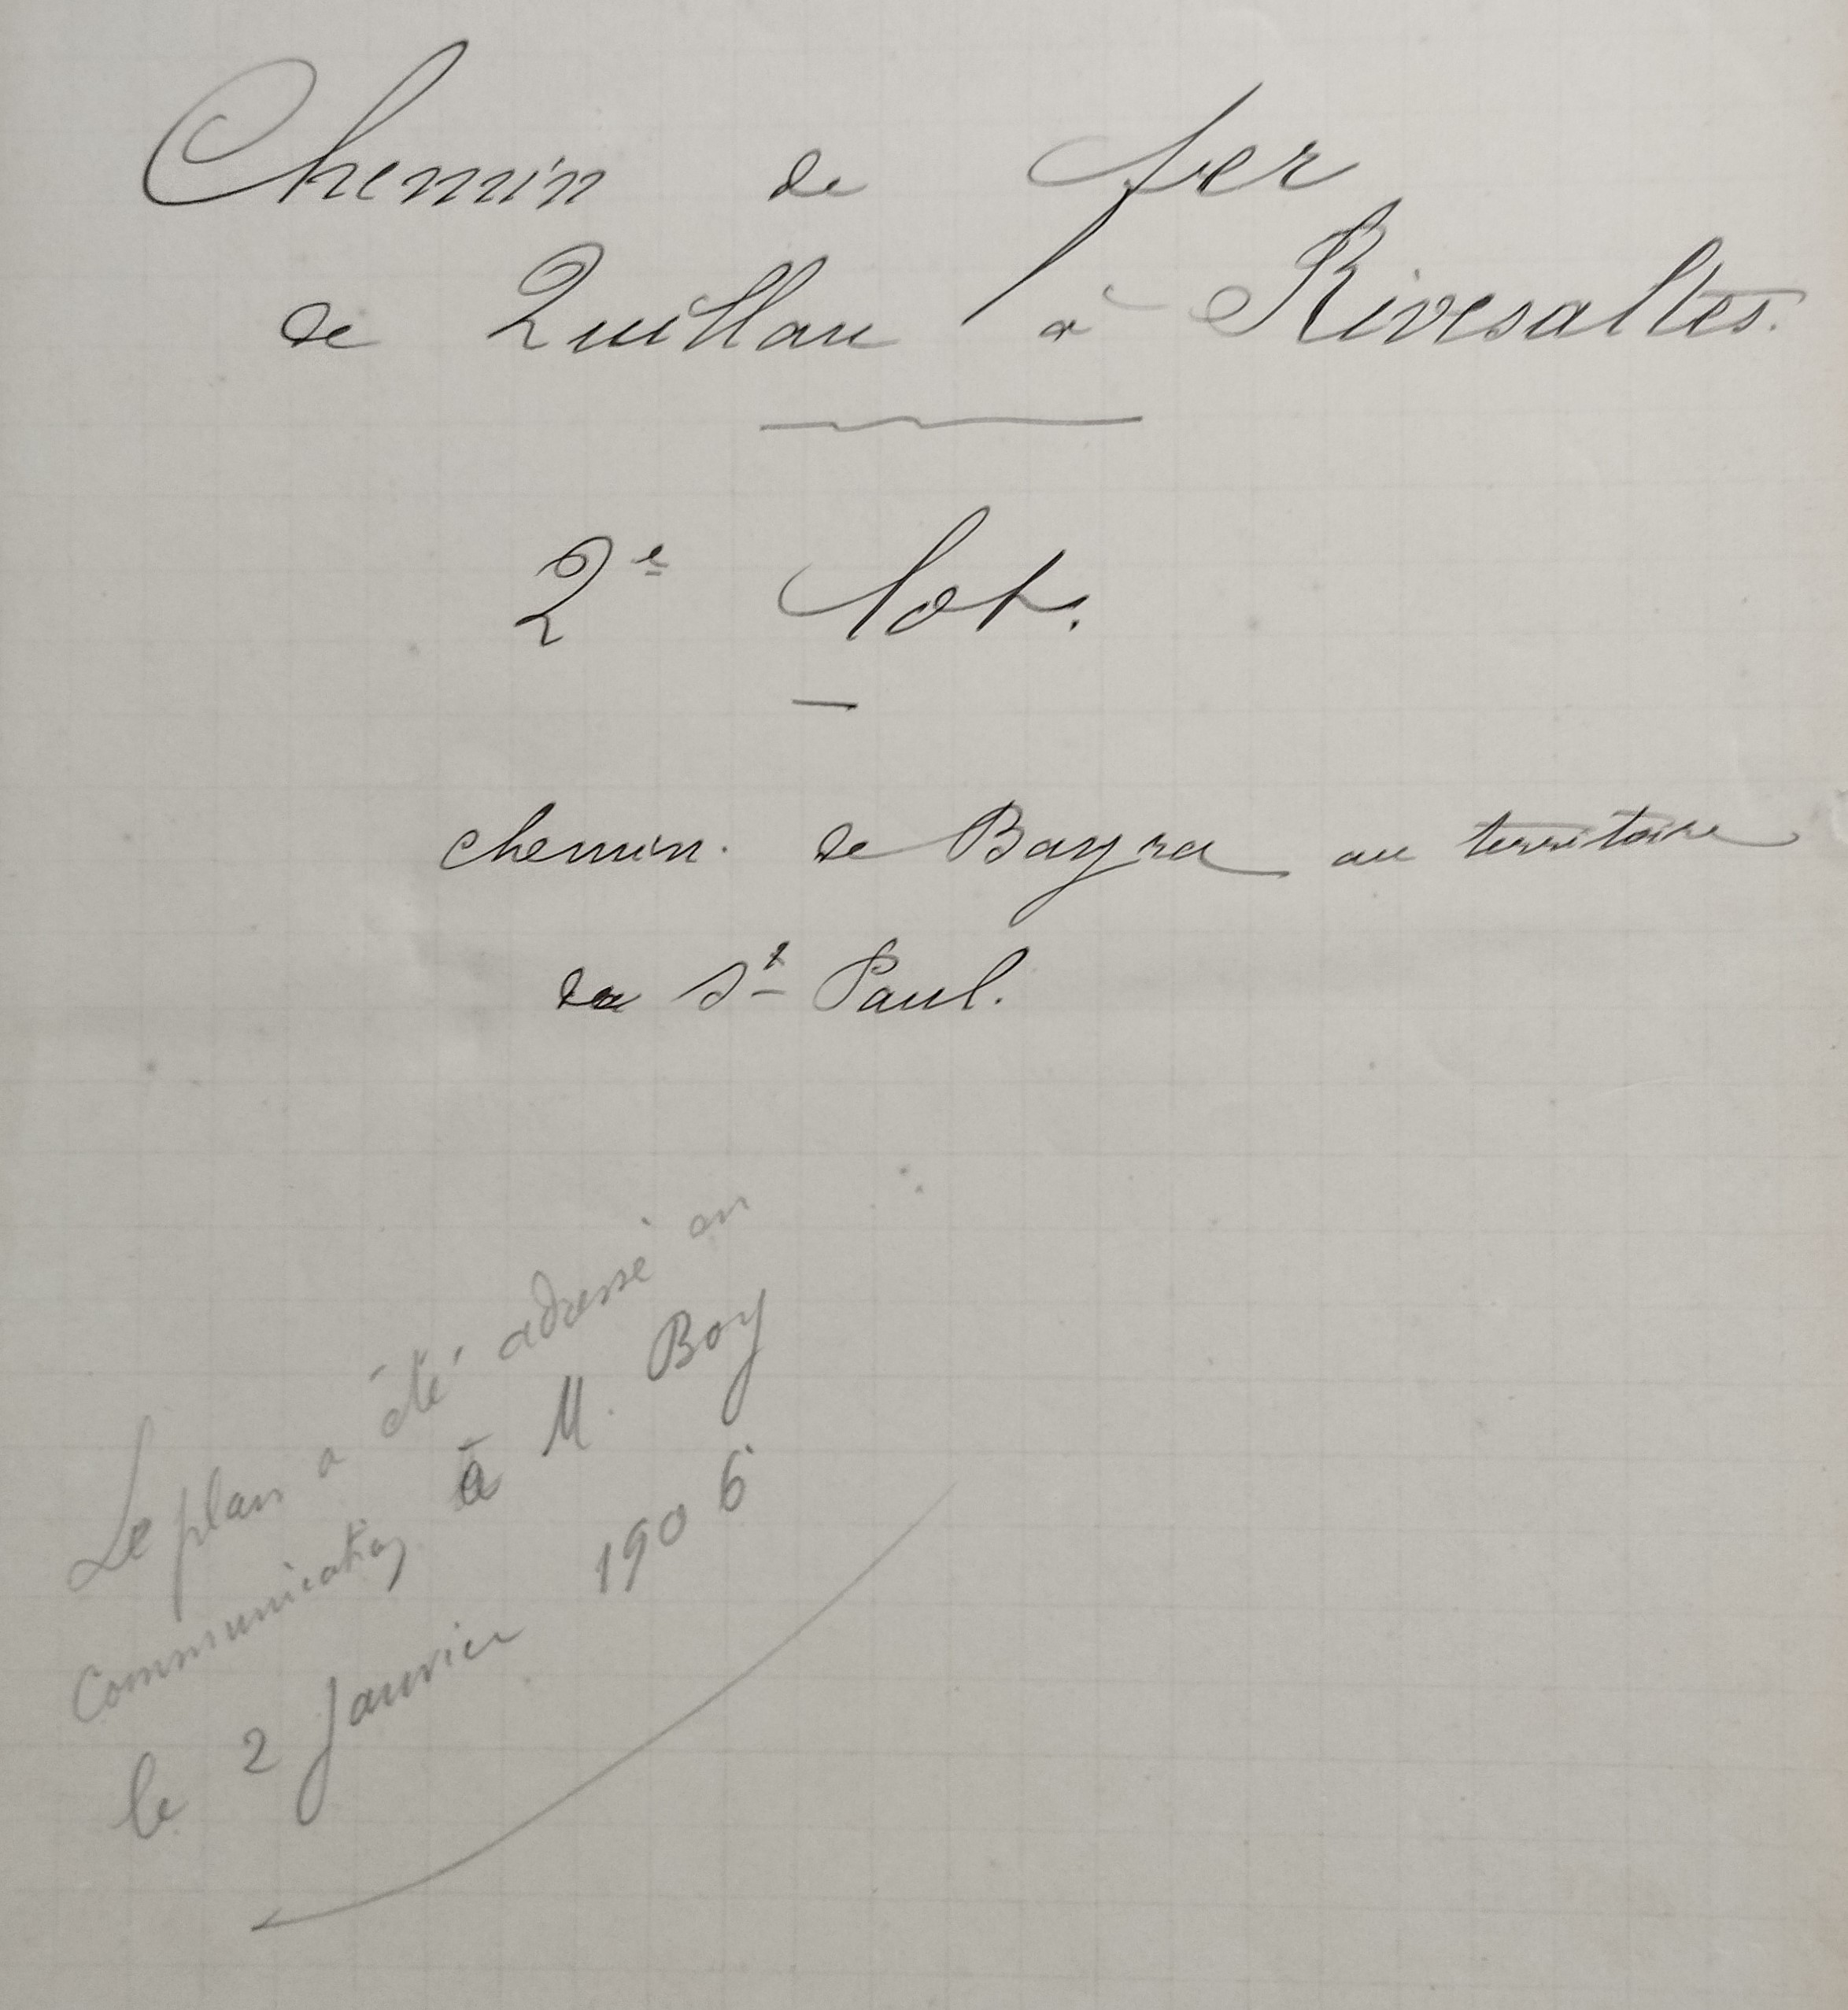 Chemin de fer
de Quillan à Rivesaltes.
2e lot.
chemin. de Bayra au territoire
de St Paul.
Le plan a été adressé en
communication à M. Boy
le 2 Janvier 1906